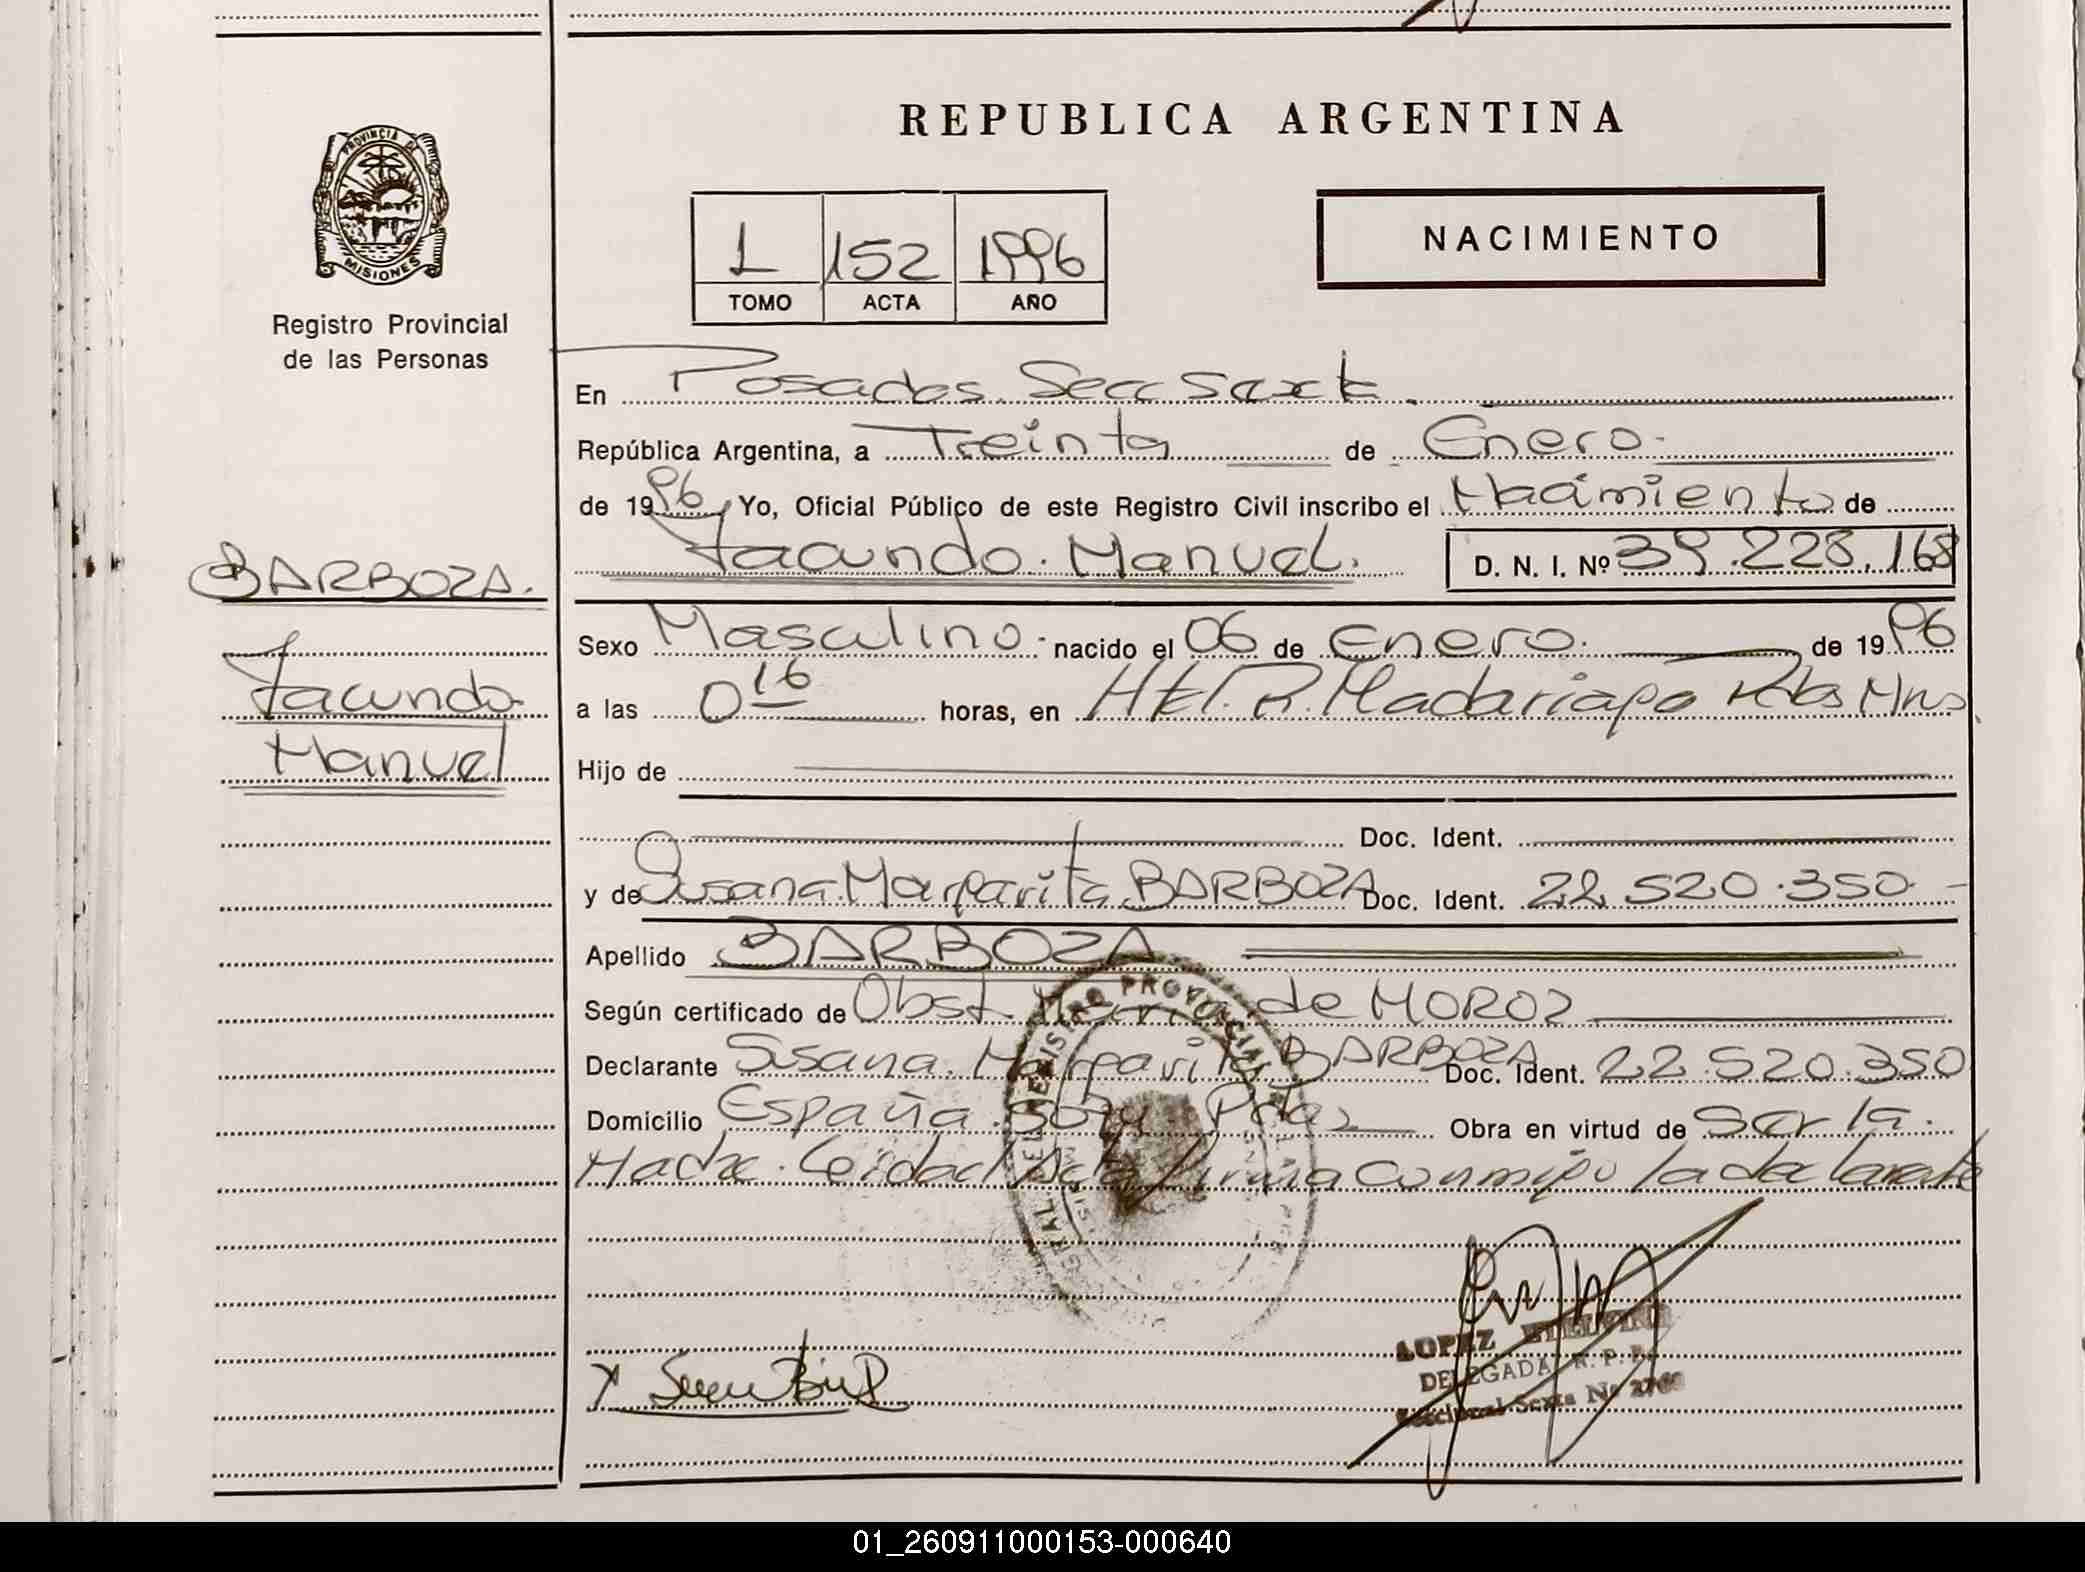 REPUBLICA ARGENTINA
PROVINCIA DE
MISIONES
Registro Provincial
de las Personas
1 152 1996
TOMO ACTA AÑO
NACIMIENTO
En Posadas. Secc Sexta.
República Argentina, a Treinta de Enero.
de 1996, Yo, Oficial Público de este Registro Civil inscribo el Nacimiento de
Facundo. Manuel. D. N. I. Nº 39.228.168
BARBOZA.
Facundo
Manuel
Sexo Masculino. nacido el 06 de Enero. de 1996
a las 0 16 horas, en Htl. R. Madariaga Pdas Mns.
Hijo de
Doc. Ident.
y de Susana Margarita BARBOZA Doc. Ident. 22 520.350.-
Apellido BARBOZA
Según certificado de Obst. de MOROZ
Declarante Susana. Margarita BARBOZA Doc. Ident. 22.520.350
Domicilio España Pdas Obra en virtud de Ser la
Madre. Leida el Acta firma conmigo la declarante
REGISTRO PROVINCIAL
LOPEZ
DELEGADA R. P. P.
Seccional Sexta Nº
01_260911000153-000640